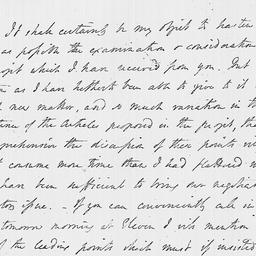 It shall certainly be my object to hasten
as possible the examination & consideration
ojet which I have received from you. But
as I have hitherto been able to give to it
new matter, and so much variation in th
of the Articles proposed in the projet, tha
the discussion of these points wi
consume more time than I had flattered m
have been sufficient to bring our negotia
issue. – If you can conveniently call in
tomorrow morning at Eleven I will mention
of the leading points which must if insisted